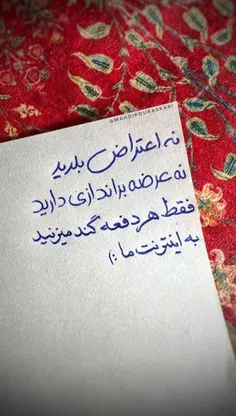 @MAHDIPOURASKARI
نه اعتراض بلدید
نه عرضه براندازی دارید
فقط هر دفعه گند میزنید
به اینترنت ما :)